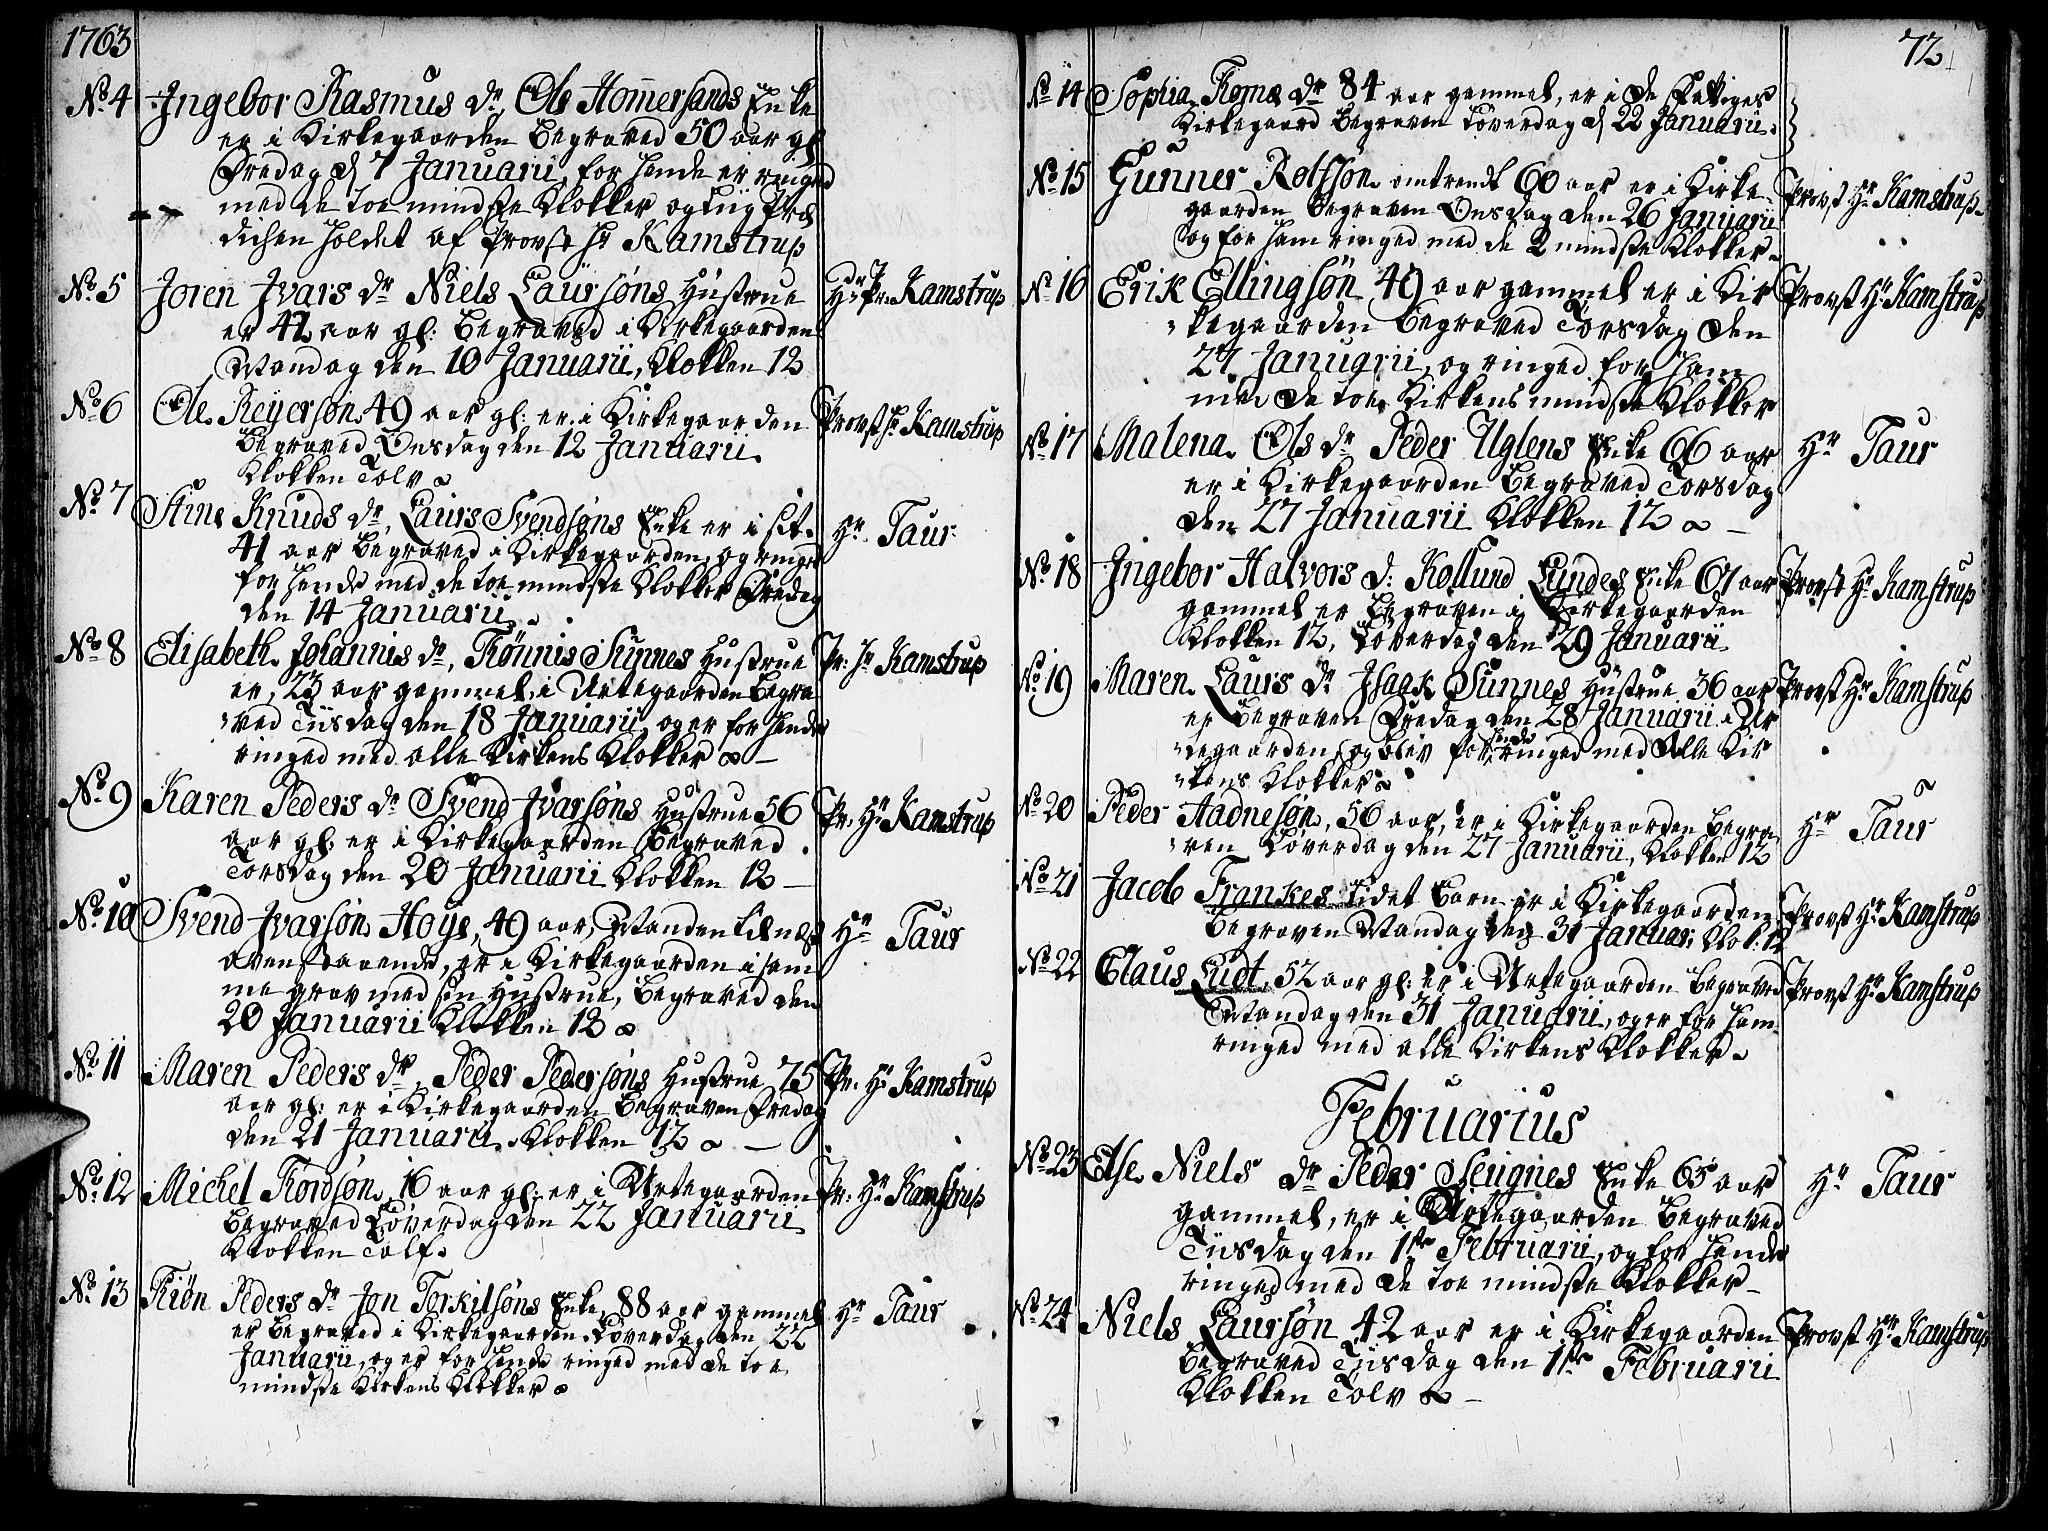 1763
No. 4 Ingebor Rasmus dr. Ole Homersands Enke
er i Kirkegaarden Begraved 50 aar gl
Fredag d 7 Januarii, for hende er ringed
med de toe mindste Klokker og
dichen holdet af Provst Hr Kamstrup
No. 5 Joren Ivars dr Niels Laursøns Hustrue Hr Pr. Kamstrup
er 42 aar gl: Begraved i Kirkegaarden
Mandag den 10 Januarii, Klokken 12
No. 6 Ole Reyersøn 49 aar gl: er i Kirkegaarden Provst Hr Kamstrup
Begraved Onsdag den 12 Januarii
Klokken Tolv
No. 7 Stine Knuds dr, Laurs Svendsøns Enke er i sit Hr Taur
41 aar Begraved i Kirkegaarden, og ringed
for hende med de toe mindste Klokker Fredag
den 14 Januarii
No. 8 Elisabeth Johannis dr, Tønnis Sunnes Hustrue Pr: Hr Kamstrup
er, 23 aar gammel, i Urtegaarden Begra
ved Tiisdag den 18 Januarii, og er for hende
ringed med alle Kirkens Klokker
No. 9 Karen Peders dr Svend Ivarsøns Hustrue 56 Pr: Hr Kamstrup
aar gl: er i Kirkegaarden Begraved
Torsdag den 20 Januarii Klokken 12
No. 10 Svend Ivarsøn Høye, 49 aar, Manden til næst Hr Taur
ovenstaaende, er i Kirkegaarden i sam
me grav med sin Hustrue, Begraved den
20 Januarii Klokken 12
No. 11 Maren Peders dr, Peder Pedersøns Hustrue 75 Pr: Hr Kamstrup
aar gl: er i Kirkegaarden Begraven Fredag
den 21 Januarii Klokken 12
No. 12 Michel Tordsøn 16 aar gl: er i Urtegaarden Pr: Hr Kamstrup
Begraved Løverdag den 22 Januarii
Klokken Tolf
No. 13 Kiøn Peders dr Jon Torkilsøns Enke 88 aar gammel Hr Taur
er Begraved i Kirkegaarden Løverdag den 22
Januarii, og er for hende ringed med de toe
mindste Kirkens Klokker
72
No 14 Sophia dr 84 aar gammel, er i de Fattiges
Kirkegaard Begraven Løverdag d 22 Januarii
No 15 Gunner Rolfsøn omtrendt 60 aar er i Kirke Provst Hr Kamstrup
gaarden Begraven Onsdag den 26 Januarii
og for ham ringed med de 2 mindste Klokker
No 16 Erik Ellingsøn 49 aar gammel er i Kir Provst Hr Kamstrup
kegaarden Begraved Torsdag den
27 Januarii, og ringed for ham
med de toe Kirkens mindste Klokker
No 17 Malena Ols dr Peder Uglens Enke 66 aar Hr Taur
er i Kirkegaarden Begraved Torsdag
den 27 Januarii Klokken 12
No 18 Ingebor Halvors d: Kollund Lundes Enke 67 aar Provst Hr Kamstrup
gammel er Begraven i Kirkegaarden
Klokken 12, Løverdag den 29 Januarii
No 19 Maren Laurs dr Isaak Sunnes Hustrue 36 aar Provst Hr Kamstrup
er Begraven Fredag den 28 Januarii i Ur
tegaarden og blev for hende ringed med Alle Kir
kens Klokker
No 20 Peder Aadnesøn, 56 aar, er i Kirkegaarden Begra Hr Taur
ven Løverdag den 27 Januarii, Klokken 12
No 21 Jacob Frankes lidet Barn er i Kirkegaarden Provst Hr Kamstrup
Begraven Mandag den 31 Januar: Klok: 12
No 22 Claus Ludt, 52 aar gl: er i Urtegaarden Begraved Provst Hr Kamstrup
Mandag den 31 Januarii, og er for ham
ringed med alle Kirkens Klokker
Februarius
No 23 Else Niels dr Peder Seugnes Enke 65 aar Hr Taur
gammel, er i Urtegaarden Begraved
Tiisdag den 1ste Februarii, og for hende
ringed med de toe mindste Klokker
No. 24 Niels Laursøn 42 aar er i Kirkegaarden Provst Hr Kamstrup
Begraved Tiisdag den 1ste Februarii
Klokken Tolv